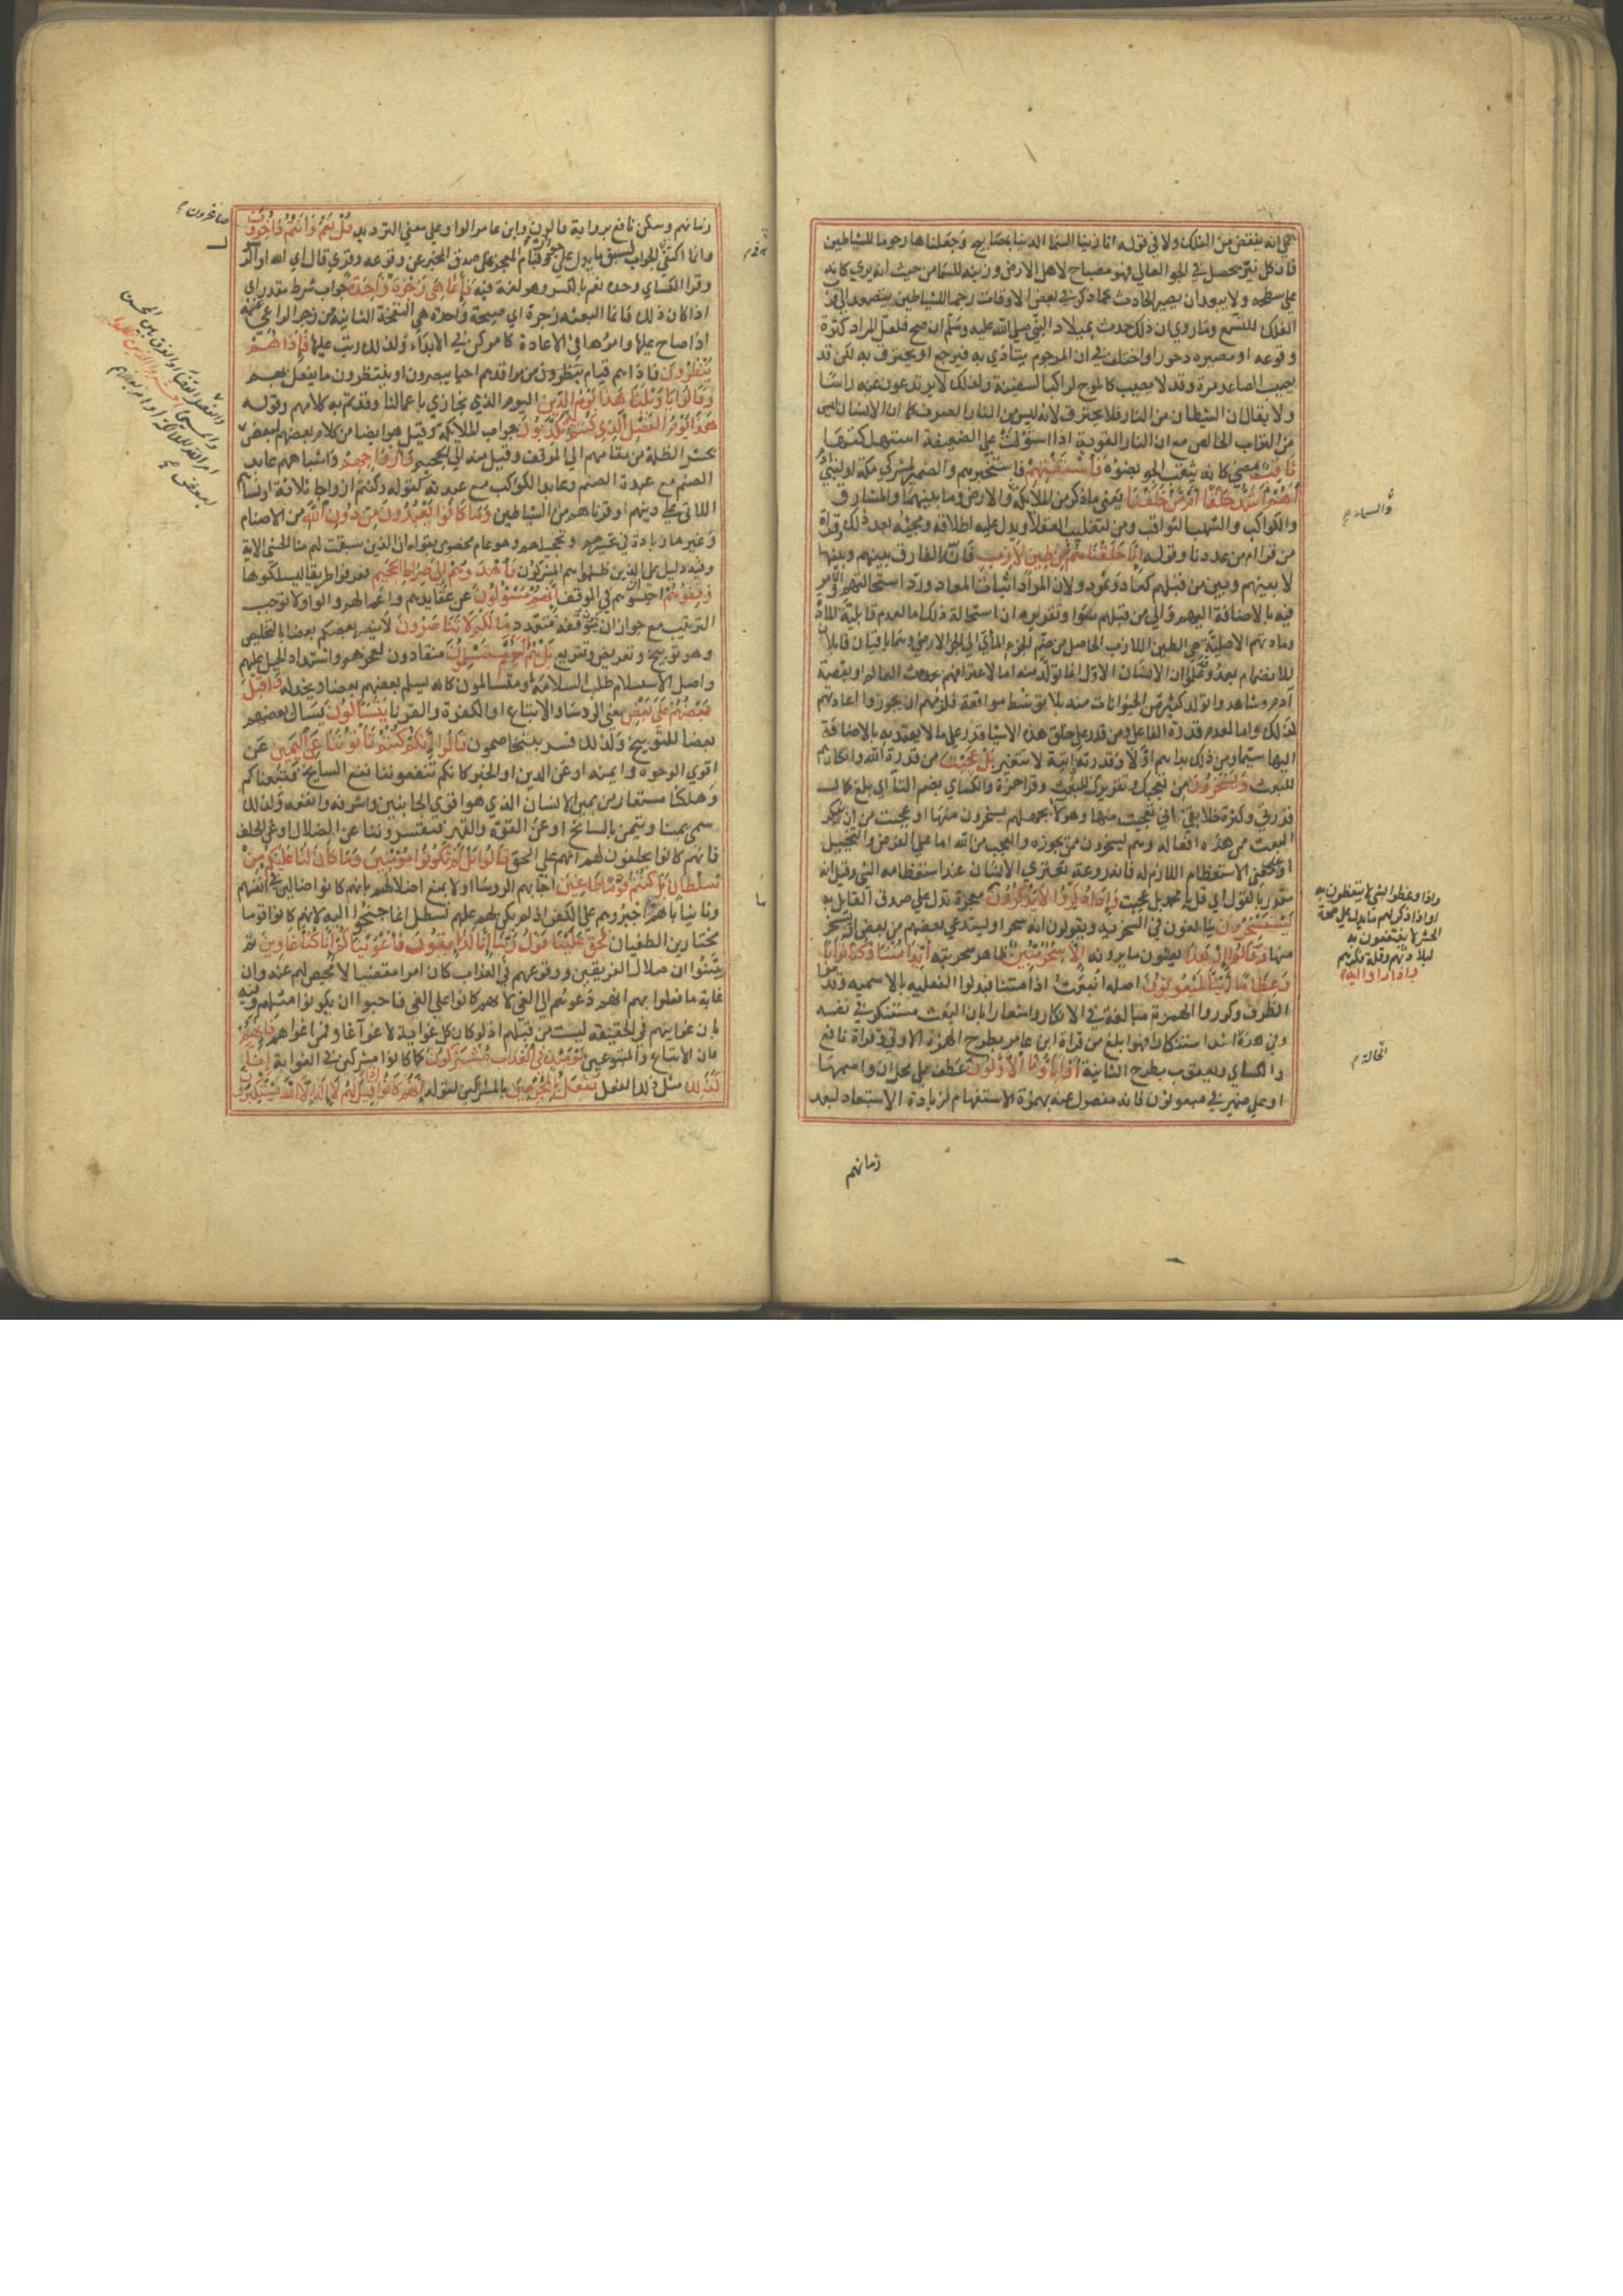 على انه ينقض من الفلك ولا في قوله انا زينا السما الدنيا بمصابيح وجعلناها رجوما للشياطين
فان كل نير يحصل في الجو العالي فهو مصباح لاهل الارض وزينة للسما من حيث انه يرى كانه
على سطحه ولا يبعد ان يصير الحادث كما ذكر في بعض الاوقات رجما للشياطين يتصعد الى قرب
الفلك للتسمع وما روي ان ذلك حدث بميلاد النبي صلى الله عليه وسلم ان صح فلعل المراد كثرة
وقوعه او مصيره دحورا واختلف في ان المرجوم يتاذى به فيرجع او يحترق به لكن قد
يصيب الصاعد مرة وقد لا يصيب كالموج لراكب السفينة ولذلك لا يرتدعون عنه راسا
ولا يقال ان الشيطان من النار فلا يحترق لانه ليس من النار الصرف كما ان الانسان ليس
من التراب الخالص مع ان النار القوية اذا استولت على الضعيفة استهلكتها
ثاقب مضئ كانه يثقب الجو بضوئه فاستفتهم فاستخبرهم والضمير لمشركي مكة او لبني آدم
أهم أشد خلقا أم من خلقنا يعني ما ذكر من الملائكة والارض وما بينهما والمشارق
والكواكب والشهب الثواقب ومن لتغليب العقلاء ويدل عليه اطلاقه ومجيئه بعد ذلك وقراة
من قرا ام من عددنا وقوله إنا خلقناهم من طين لازب فانه الفارق بينهم وبينها
لا بينهم وبين من قبلهم كعاد وثمود ولان المراد اثبات المعاد ورد استحالتهم والامر
فيه بالاضافة اليهم والى من قبلهم سوا وتقريره ان استحالة ذلك اما لعدم قابلية المادة
ومادتهم الاصلية هي الطين اللازب الحاصل من ضم الجزء المائي الى الجزء الارضي وهما باقيان قابلان
للانضمام بعد وقد علموا ان الانسان الاول انما تولد منه اما لاعترافهم بحدوث العالم او بقصة
آدم وشاهدوا تولد كثير من الحيوانات منه بلا توسط مواقعة فلزمهم ان يجوزوا اعادتهم
كذلك واما لعدم قدرة الفاعل ومن قدر على خلق هذه الاشيا قدر على ما لا يعتد به بالاضافة
اليها سيما ومن ذلك بداهم اولا وقدرته ذاتية لا تتغير بل عجبت من قدرة الله وانكارهم
للبعث ويسخرون من تعجبك وتقريرك للبعث وقرا حمزة والكسائي بضم التاء اي بلغ كمال
قدرتي وكثرة خلائقي اني تعجبت منها وهؤلاء بجهلهم يسخرون منها او عجبت من ان ينكر
البعث ممن هذه افعاله وهم يسخرون ممن يجوزه والعجب من الله اما على الفرض والتخييل
او على معنى الاستعظام اللازم له فانه روعة تعتري الانسان عند استعظامه الشئ وقيل انه
مقدر بالقول اي قل يا محمد بل عجبت وإذا ذكروا لا يذكرون معجزة تدل على صدق القايل به
يستسخرون يبالغون في السخرية ويقولون انه سحر او يستدعي بعضهم من بعض ان يسخر
منها وقالوا إن هذا يعنون ما يرونه إلا سحر مبين ظاهر سحريته أئذا متنا وكنا ترابا
وعظاما أئنا لمبعوثون اصله انبعث اذا متنا فبدلوا الفعلية بالاسمية وقدموا
الظرف وكرروا الهمزة مبالغة في الانكار واشعارا بان البعث مستنكر في نفسه
وفي هذه اشد استنكارا فهو ابلغ من قراة ابن عامر بطرح الهمزة الاولى وقراة نافع
والكسائي ويعقوب بطرح الثانية أو آباؤنا الأولون عطف على محل ان واسمها
او على ضمير في مبعوثون فانه مفصول عنه بهمزة الاستفهام لزيادة الاستبعاد لبعد
والسماء صح
واذا وعظوا بشئ لا يتعظون به
او اذا ذكر لهم ما يدل على صحة
الحشر لا ينتفعون به
لبلادتهم وقلة فكرهم
واذا راوا آية
زمانهم
زمانهم وسكن نافع برواية قالون وابن عامر الواو على معنى الترديد قل نعم وأنتم داخرون
وانما اكتفى به في الجواب لسبق ما يدل على جوازه وقيام المعجزة على صدق المخبر عن وقوعه وقرئ قال اي الله او الرسول
وقرا الكسائي وحده نعم بالكسر وهو لغة فيه فإنما هي زجرة واحدة جواب شرط مقدر اي
اذا كان ذلك فانما البعثة زجرة اي صيحة واحدة هي النفخة الثانية من زجر الراعي غنمه
اذا صاح عليها وامرها في الاعادة كامر كن في الابداء ولذلك رتب عليها فإذا هم
ينظرون فاذا هم قيام ينظرون من مراقدهم احيا يبصرون او ينتظرون ما يفعل بهم
وقالوا يا ويلنا هذا يوم الدين اليوم الذي نجازى باعمالنا وقد تم به كلامهم وقوله
هذا يوم الفصل الذي كنتم به تكذبون جواب الملائكة وقيل هو ايضا من كلام بعضهم لبعض
بحشر الظلمة من مقامهم الى الموقف وقيل منه الى الجحيم وأزواجهم واشباههم عابد
الصنم مع عبدة الصنم وعابد الكواكب مع عبدته كقوله وكنتم ازواجا ثلاثة او نساءهم
اللاتي على دينهم او قرناءهم من الشياطين وما كانوا يعبدون من دون الله من الاصنام
وغيرها زيادة في تحسيرهم وتخجيلهم وهو عام مخصوص بقوله ان الذين سبقت لهم منا الحسنى الاية
وفيه دليل على ان الذين ظلموا هم المشركون فاهدوهم إلى صراط الجحيم فعرفوهم طريقها ليسلكوها
وقفوهم احبسوهم في الموقف إنهم مسؤولون عن عقايدهم واعمالهم والواو لا توجب
الترتيب مع جواز ان يكون موقفهم متعددا ما لكم لا تناصرون لا ينصر بعضكم بعضا بالتخليص
وهو توبيخ وتقريع بل هم اليوم مستسلمون منقادون لعجزهم وانسداد الحيل عليهم
واصل الاستسلام طلب السلامة او متسالمون كانه يسلم بعضهم بعضا ويخذله وأقبل
بعضهم على بعض يعني الرؤساء والاتباع او الكفرة والقرنا يتساءلون يسال بعضهم
بعضا للتوبيخ ولذلك فسر بيتخاصمون قالوا إنكم كنتم تأتوننا عن اليمين عن
اقوى الوجوه وايمنه او عن الدين او الخير كانكم تنفعوننا نفع السانح فتبعناكم
وهلكنا مستعار من يمين الانسان الذي هو اقوى الجانبين واشرفه وانفعه ولذلك
سمي يمينا وتيمن بالسانح او عن القوة والقهر فتقسروننا على الضلال او عن الحلف
فانهم كانوا يحلفون لهم انهم على الحق قالوا بل لم تكونوا مؤمنين وما كان لنا عليكم من
سلطان بل كنتم قوما طاغين اجابهم الرؤسا اولا بمنع اضلالهم بانهم كانوا ضالين في انفسهم
وثانيا بانهم ما اجبروهم على الكفر اذ لم يكن لهم عليهم تسلط انما جنحوا اليه لانهم كانوا قوما
مختارين الطغيان فحق علينا قول ربنا إنا لذائقون فأغويناكم إنا كنا غاوين ثم
بينوا ان ضلال الفريقين ووقوعهم في العذاب كان امرا مقضيا لا محيص لهم عنه وان
غاية ما فعلوا بهم انهم دعوهم الى الغي لانهم كانوا على الغي فاحبوا ان يكونوا مثلهم وفيه
بان غوايتهم في الحقيقة ليست من قبلهم اذ لو كان كل غواية لاغواء غاو فمن اغواهم فإنهم
فان الاتباع والمتبوعين يومئذ في العذاب مشتركون كما كانوا مشتركين في الغواية إنا
كذلك مثل ذلك الفعل نفعل بالمجرمين بالمشركين لقوله إنهم كانوا إذا قيل لهم لا إله إلا الله يستكبرون
صاغرون صح